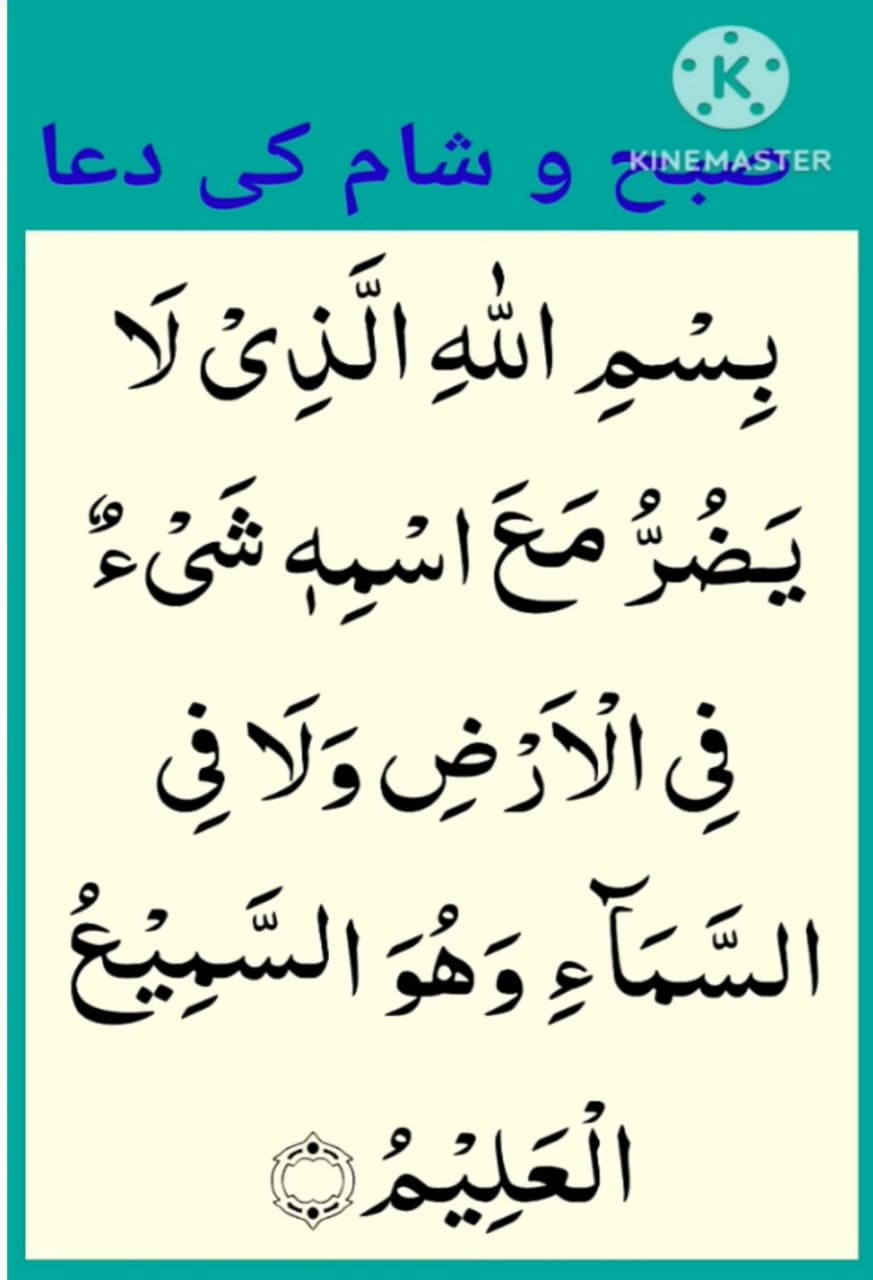 K
KINEMASTER
صبح و شام کی دعا
بِسْمِ اللّٰهِ الَّذِیْ لَا
یَضُرُّ مَعَ اسْمِهٖ شَیْءٌ
فِی الْاَرْضِ وَلَا فِی
السَّمَآءِ وَهُوَ السَّمِیْعُ
الْعَلِیْمُ